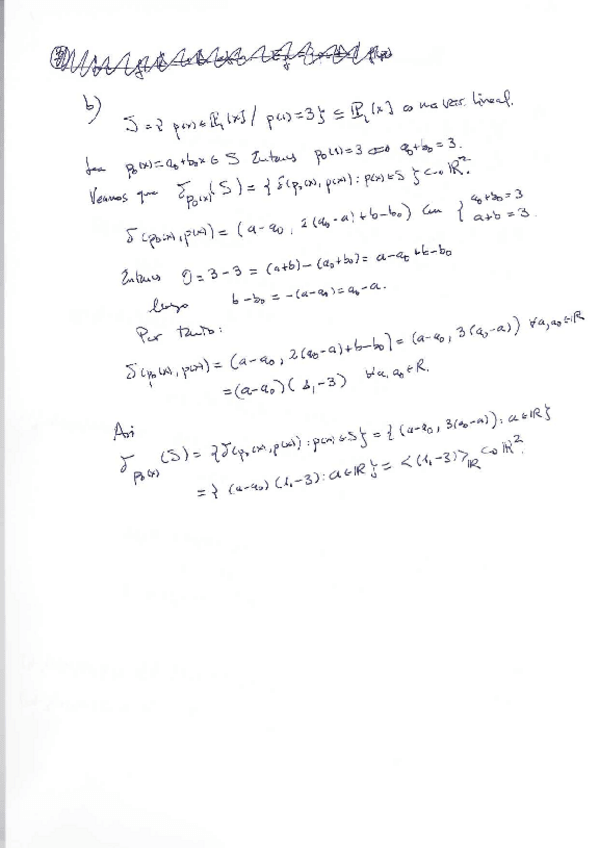 b)
S = { p(x) ∈ ℙ₁[x] / p(1) = 3 } ⊆ ℙ₁[x] es una var. lineal.
Sea p₀(x) = a₀+b₀x ∈ S Entonces p₀(1) = 3 ⟺ a₀+b₀ = 3.
Veamos que δ_{p₀(x)}(S) = { δ(p₀(x), p(x)) : p(x) ∈ S } ↪ ℝ².
δ(p₀(x), p(x)) = (a-a₀, 2(a₀-a)+b-b₀) con { a₀+b₀ = 3
a+b = 3.
Entonces 0 = 3-3 = (a+b)-(a₀+b₀) = a-a₀+b-b₀
luego b-b₀ = -(a-a₀) = a₀-a.
Por tanto:
δ(p₀(x), p(x)) = (a-a₀, 2(a₀-a)+b-b₀) = (a-a₀, 3(a₀-a)) ∀a,a₀∈ℝ
= (a-a₀)(1,-3) ∀a,a₀∈ℝ.
Así
δ_{p₀(x)}(S) = { δ(p₀(x), p(x)) : p(x) ∈ S } = { (a-a₀, 3(a₀-a)) : a∈ℝ }
= { (a-a₀)(1,-3) : a∈ℝ } = <(1,-3)>_ℝ ↪ ℝ².